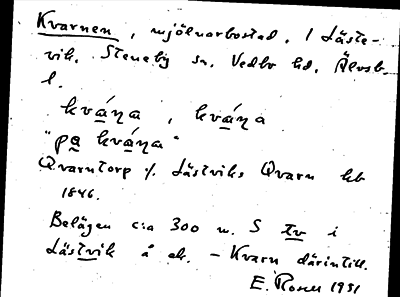 Kvarnen, mjölnarbostad. I Läste-
vik. Steneby sn. Vedbo hd. Älvsb.
l.
kvána, kvána
"pa kvána"
Qvarntorp /. Lästviks Qvarn kb
1846.
Belägen c:a 300 m. S tv i
Lästvik å ek. - Kvarn därintill.
E. Rosell 1931